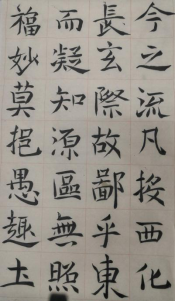 福而長今
妙凝玄之
莫知際流
挹源故凡
愚區鄙投
趣無乎西
土照東化